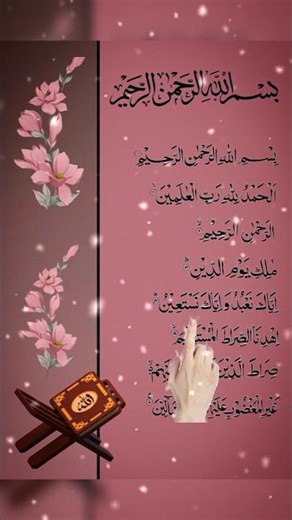 بسم الله الرحمن الرحيم
بِسْمِ اللهِ الرَّحْمٰنِ الرَّحِيْمِ
اَلْحَمْدُ لِلّٰهِ رَبِّ الْعٰلَمِيْنَ
الرَّحْمٰنِ الرَّحِيْمِ
مٰلِكِ يَوْمِ الدِّيْنِ
اِيَّاكَ نَعْبُدُ وَاِيَّاكَ نَسْتَعِيْنُ
اِهْدِنَا الصِّرَاطَ
صِرَاطَ الَّذِيْنَ
غَيْرِ الْمَغْضُوْبِ
الله